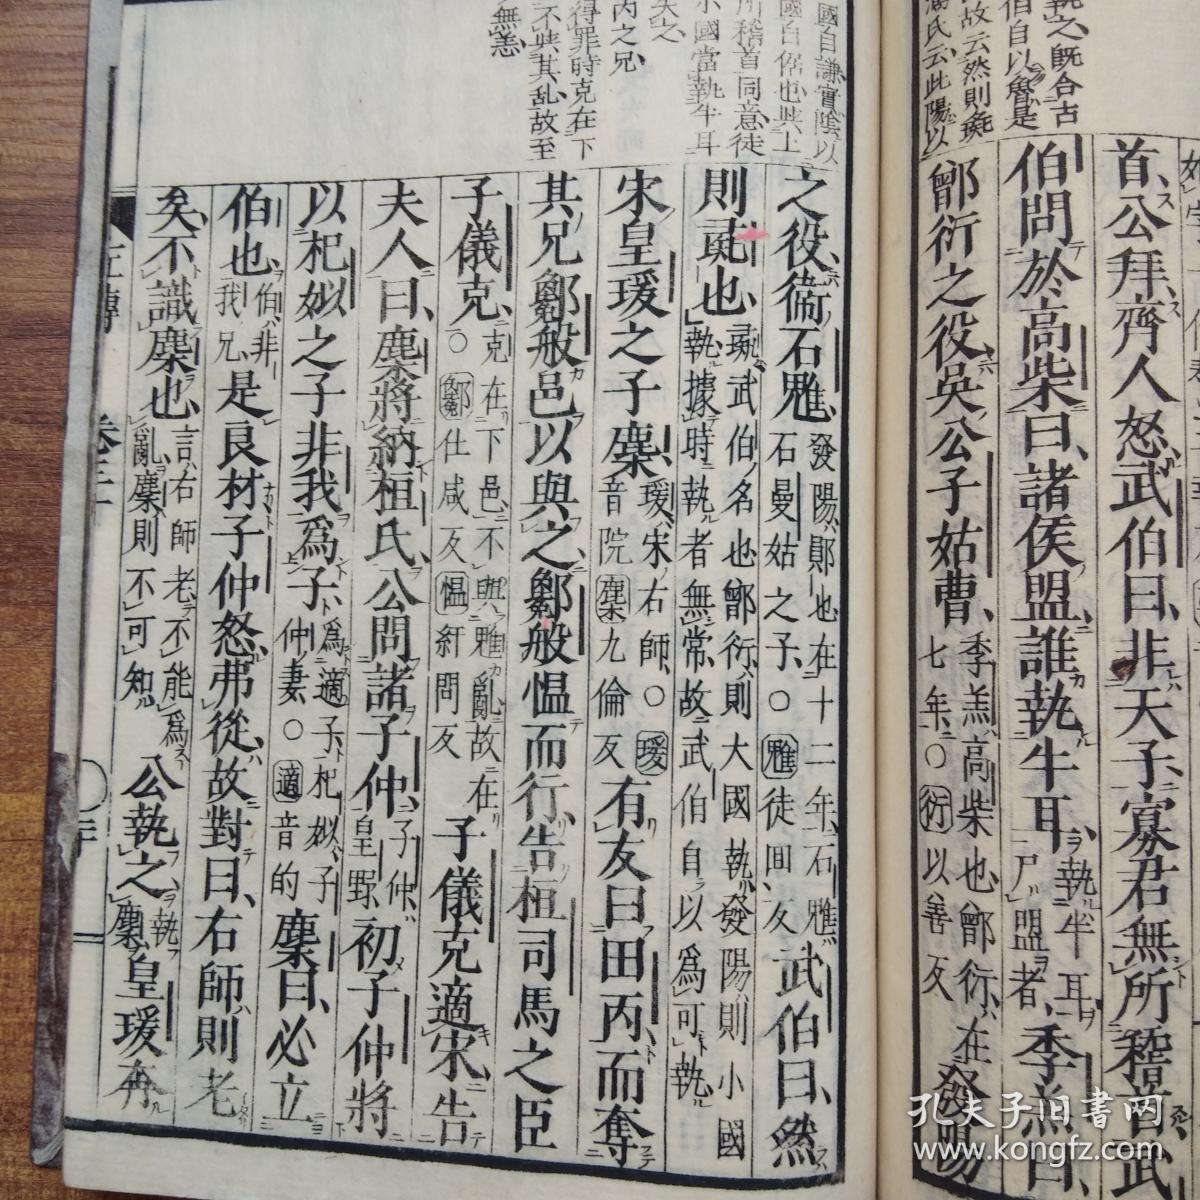 首公拜齊人怒武伯曰非天子寡君無所稽首武
伯問於高柴曰諸侯盟誰執牛耳執牛耳尸盟者季羔曰
鄫衍之役吳公子姑曹季羔高柴也鄫衍在七年○衍以善反發陽
之役衛石魋發陽鄖也在十二年石魋石曼姑之子○魋徒回反武伯曰然
則彘也彘武伯名也鄫衍則大國執發陽則小國執據時執者無常故武伯自以為可執
宋皇瑗之子麇瑗宋右師○瑗音院麇九倫反有友曰田丙而奪
其兄鄤般邑以與之鄤般慍而行告桓司馬之臣
子儀克克在下邑不與魋亂故在○鄤仕咸反慍紆問反子儀克適宋告
夫人曰麇將納桓氏公問諸子仲子仲皇野初子仲將
以杞姒之子非我為子為適子杞姒子仲妻○適音的麇曰必立
伯也伯非我兄是良材子仲怒弗從故對曰右師則老
矣不識麇也言右師老不能為亂麇則不可知公執之執麇皇瑗奔
執之既合古
伯自以魯是
故云然則彘
氏云此陽以
國自謙實陰以
國自居也與上
所稽首同意徒
小國當執牛耳
失之
丙之兄
得罪時克在下
不與其亂故至
無恙
左傳
卷三十
孔夫子旧書网
www.kongfz.com